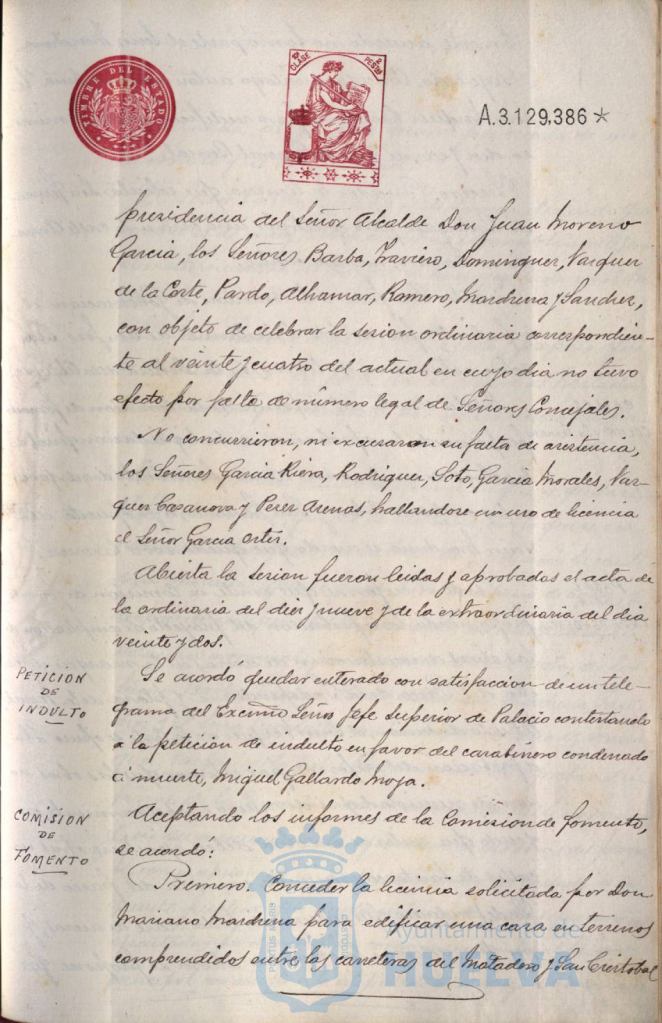 TIMBRE DEL ESTADO
CLASE
PESETAS
A.3.129,386*
presidencia del Señor Alcalde Don Juan Moreno
Garcia, los Señores Barba, Traviero, Dominguez, Vazquez
de la Corte, Pardo, Alhamar, Ramero, Mardrena y Sanchez,
con objeto de celebrar la sesion ordinaria correspondien-
te al veinte y cuatro del actual en cuyo dia no tuvo
efecto por falta de número legal de Señores Concejales.
No concurrieron, ni excusaron su falta de asistencia,
los Señores Garcia Riera, Rodriguez, Soto, Garcia Morales, Vaz-
quez Casanova y Perez Arenas, hallandose en uso de licencia
el Señor Garcia Ortiz.
Abierta la sesion fueron leidas y aprobadas el acta de
la ordinaria del diez y nueve y de la extraordinaria del dia
veinte y dos.
PETICIÓN
DE
INDULTO
Se acordó quedar enterado con satisfaccion de un tele-
grama del Excmo Señor Jefe Superior de Palacio contestando
á la peticion de indulto en favor del carabinero condenado
á muerte, Miguel Gallardo Moya.
COMISIÓN
DE
FOMENTO
Aceptando los informes de la Comision de fomento,
se acordó:
Primero. Conceder la licencia solicitada por Don
Mariano Mardrena para edificar una casa en terrenos
comprendidos entre las carreteras del Matadero y San Cristobal
Ayuntamiento de
HUELVA